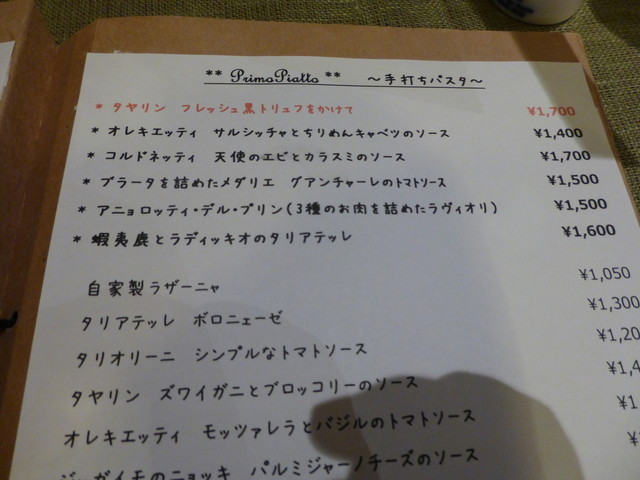 ** PrimoPiatto ** ～手打ちパスタ～
* タヤリン フレッシュ黒トリュフをかけて ¥1,700
* オレキエッティ サルシッチャとちりめんキャベツのソース ¥1,400
* コルドネッティ 天使のエビとカラスミのソース ¥1,700
* ブラータを詰めたメダリエ グアンチャーレのトマトソース ¥1,500
* アニョロッティ・デル・プリン(3種のお肉を詰めたラヴィオリ) ¥1,500
* 蝦夷鹿とラディッキオのタリアテッレ ¥1,600
自家製ラザーニャ ¥1,050
タリアテッレ ボロニェーゼ ¥1,300
タリオリーニ シンプルなトマトソース ¥1,20
タヤリン ズワイガニとブロッコリーのソース ¥1,4
オレキエッティ モッツァレラとバジルのトマトソース ¥1
ジャガイモのニョッキ パルミジャーノチーズのソース